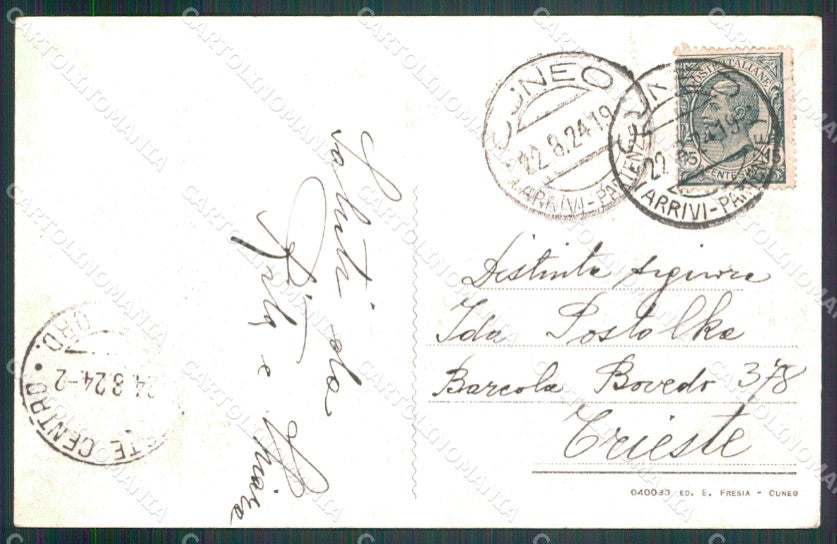 CUNEO
22.8.24 19
ARRIVI - PARTENZE
POSTE ITALIANE
15 CENTESIMI 15
22.8.24 19
ARRIVI - PARTENZE
Saluti da
Rita
e
Distinta signora
Ida Postolka
Barcola Bovedo 378
Trieste
24.8.24-2
CENTRO
040033 ED. E. FRESIA - CUNEO
CARTOLINOMANIA